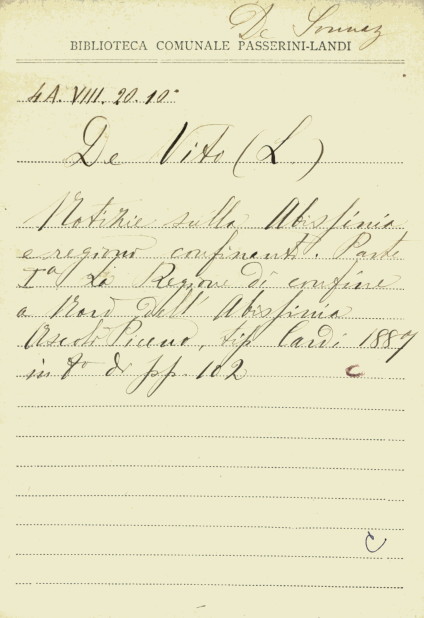 De Sonnaz
BIBLIOTECA COMUNALE PASSERINI-LANDI
4A. VIII. 20. 10°
De Vito (L.)
Notizie sulla Abissinia
e regiono confinanti. Parte
Iª La Regione di confine
a Nord dell' Abissinia
Ascoli Piceno, tip Cardi 1887
in 8° di pp. 102
C
C